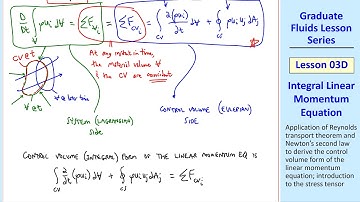 D/Dt ∫ ρu_i dV = ΣF_Vi = ΣF_CVi = ∫_CV ∂(ρu_i)/∂t dV + ∮_CS ρu_i u_j dA_j
CV @ t
At any instant in time,
the material volume
& the CV are coincident
V @ t
V @ a later time
SYSTEM (LAGRANGIAN)
SIDE
CONTROL VOLUME (EULERIAN)
SIDE
CONTROL VOLUME (INTEGRAL) FORM OF THE LINEAR MOMENTUM EQ IS
∫_CV ∂/∂t (ρu_i) dV + ∮_CS ρu_i u_j dA_j = ΣF_CVi
Graduate
Fluids Lesson
Series
Lesson 03D
Integral Linear
Momentum
Equation
Application of Reynolds
transport theorem and
Newton's second law
to derive the control
volume form of the
linear momentum
equation; introduction
to the stress tensor